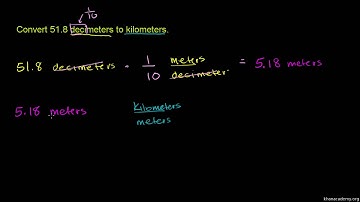 1/10
Convert 51.8 decimeters to kilometers.
51.8 decimeters · 1/10 meters/decimeter = 5.18 meters
5.18 meters kilometers/meters
khanacademy.org